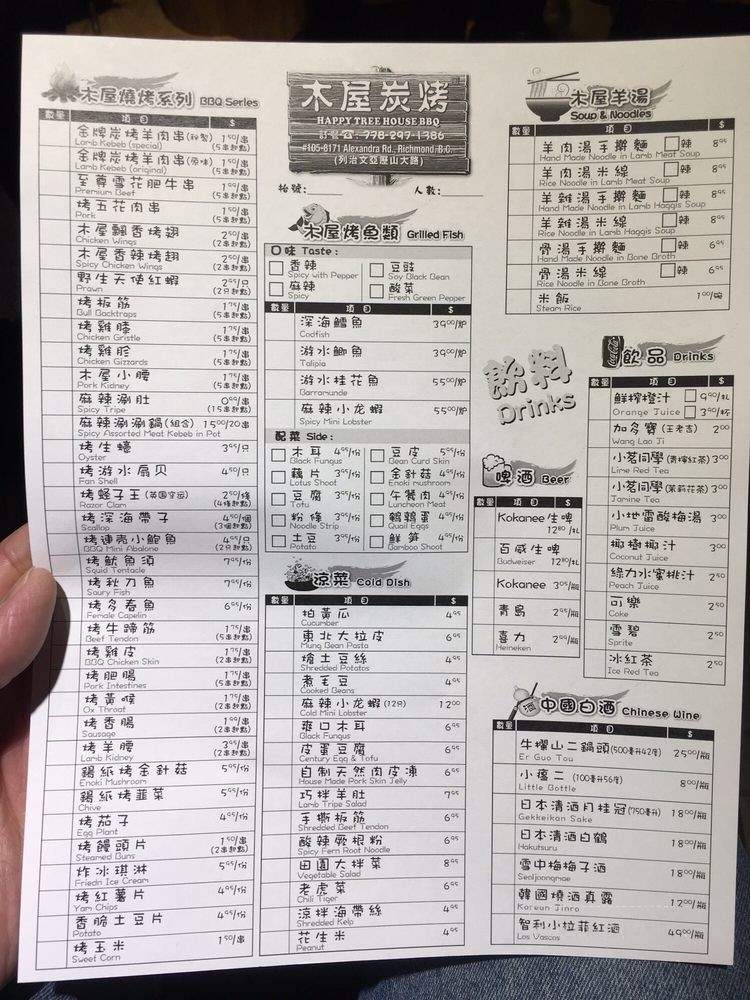 木屋燒烤系列 BBQ Series
數量 項目 $
金牌炭烤羊肉串(秘製) 1⁵⁰/串
Lamb Kebeb (special) (5串起點)
金牌炭烤羊肉串(原味) 1⁵⁰/串
Lamb Kebeb (original) (5串起點)
至尊雪花肥牛串 1⁹⁹/串
Premium Beef (5串起點)
烤五花肉串 2⁵⁰/串
Pork (5串起點)
木屋飄香烤翅 2⁵⁰/串
Chicken Wings (2串起點)
木屋香辣烤翅 2⁵⁰/串
Spicy Chicken Wings (2串起點)
野生天使紅蝦 2⁹⁵/只
Prawn (2只起點)
烤板筋 1⁷⁵/串
Bull Backtraps (5串起點)
烤雞膝 1⁷⁵/串
Chicken Gristle (5串起點)
烤雞胗 1⁷⁵/串
Chicken Gizzards (5串起點)
木屋小腰 1⁷⁵/串
Pork Kidney (5串起點)
麻辣涮肚 0⁹⁹/串
Spicy Tripe (15串起點)
麻辣涮涮鍋(組合) 15⁰⁰/20串
Spicy Assorted Meat Kebeb in Pot
烤生蠔 3⁹⁵/只
Oyster
烤游水扇贝 4⁵⁰/只
Fan Shell
烤蟶子王(英国空运) 2⁵⁰/條
Razor Clam (4條起點)
烤深海帶子 4⁵⁰/個
Scallop (3個起點)
烤連壳小鮑魚 4⁹⁵/只
BBQ Mini Abalone (2只起點)
烤魷魚須 7⁹⁵/份
Squid Tentacle
烤秋刀魚 7⁹⁵/份
Saury Fish
烤多春魚 6⁹⁵/份
Female Capelin
烤牛蹄筋 1⁷⁵/串
Beef Tendon (5串起點)
烤雞皮 1⁷⁵/串
BBQ Chicken Skin (2串起點)
烤肥腸 1⁷⁵/串
Pork Intestines (5串起點)
烤黃喉 1⁷⁵/串
Ox Throat (2串起點)
烤香腸 1⁹⁹/串
Sausage (2串起點)
烤羊腰 3⁹⁵/串
Lamb Kidney (2串起點)
錫紙烤金針菇 5⁹⁵/份
Enoki Mushroom
錫紙烤韮菜 5⁹⁵/份
Chive
烤茄子 4⁹⁵/份
Egg Plant
烤饅頭片 1⁵⁰/串
Steamed Buns (2串起點)
炸冰琪淋 5⁹⁵/份
Friedn Ice Cream
烤紅薯片 4⁹⁵/份
Yam Chips
香脆土豆片 4⁹⁵/份
Potato
烤玉米 1⁵⁰/串
Sweet Corn
木屋炭烤
HAPPY TREE HOUSE BBQ
訂餐☎: 778-297-1386
#105-8171 Alexandra Rd., Richmond, B.C.
(列治文亞歷山大路)
抬號: 人數:
木屋烤魚類 Grilled Fish
口味 Taste:
香辣 豆豉
Spicy with Pepper Soy Black Bean
麻辣 酸菜
Spicy Fresh Green Pepper
數量 項目 $
深海鱈魚 39⁰⁰/炉
Codfish
游水鯽魚 39⁰⁰/炉
Talipia
游水桂花魚 55⁰⁰/炉
Barramunde
麻辣小龙蝦 55⁰⁰/炉
Spicy Mini Lobster
配菜 Side:
木耳 4⁹⁵/份 豆皮 5⁹⁵/份
Black Fungus Bean Curd Skin
藕片 3⁹⁵/份 金針菇 4⁹⁵/份
Lotus Shoot Enoki mushroom
豆腐 3⁹⁵/份 午餐肉 4⁹⁵/份
Tofu Luncheon Meat
粉條 3⁹⁵/份 鵪鶉蛋 4⁹⁵/份
Noodle Strip Quail Eggs
土豆 3⁹⁵/份 鮮笋 4⁹⁵/份
Potato Bamboo Shoot
涼菜 Cold Dish
數量 項目 $
拍黃瓜 4⁹⁵
Cucumber
東北大拉皮 6⁹⁵
Mung Bean Pasta
熗土豆絲 4⁹⁵
Shredded Potatos
煮毛豆 4⁹⁵
Cooked Beans
麻辣小龙蝦(12只) 12⁰⁰
Cold Mini Lobster
爽口木耳 6⁹⁵
Black Fungus
皮蛋豆腐 6⁹⁵
Century Egg & Tofu
自制天然肉皮凍 6⁹⁵
House Made Pork Skin Jelly
巧拌羊肚 7⁹⁵
Lamb Tripe Salad
手撕板筋 6⁹⁵
Shredded Beef Tendon
酸辣蕨根粉 6⁹⁵
Spicy Fern Root Noodle
田園大拌菜 8⁹⁵
Vegetable Salad
老虎菜 6⁹⁵
Chili Tiger
涼拌海帶絲 4⁹⁵
Shredded Kelp
花生米 4⁹⁵
Peanut
木屋羊湯
Soup & Noodles
數量 項目 $
羊肉湯手擀麵 辣 8⁹⁵
Hand Made Noodle in Lamb Meat Soup
羊肉湯米線 辣 8⁹⁵
Rice Noodle in Lamb Meat Soup
羊雜湯手擀麵 辣 8⁹⁵
Hand Made Noodle in Lamb Haggis Soup
羊雜湯米線 辣 8⁹⁵
Rice Noodle in Lamb Haggis Soup
骨湯手擀麵 辣 6⁹⁵
Hand Made Noodle in Bone Broth
骨湯米線 辣 6⁹⁵
Rice Noodle in Bone Broth
米飯 1⁰⁰/碗
Steam Rice
飲料
Drinks
啤酒 Beer
數量 項目 $
Kokanee生啤
12⁸⁰/扎
百威生啤
Budweiser 12⁸⁰/扎
Kokanee 3⁰⁵/瓶
青島 2⁹⁵/瓶
喜力 2⁹⁹/瓶
Heineken
Coca-Cola
飲品 Drinks
數量 項目 $
鮮榨橙汁 9⁹⁰/扎
Orange Juice 3⁹⁰/杯
加多寶(王老吉) 2⁰⁰
Wang Lao Ji
小茗同學(青檸紅茶) 3⁰⁰
Lime Red Tea
小茗同學(茉莉花茶) 3⁰⁰
Jamine Tea
小地雷酸梅湯 3⁰⁰
Plum Juice
椰樹椰汁 3⁰⁰
Coconut Juice
綠力水蜜桃汁 2⁵⁰
Peach Juice
可樂 2⁵⁰
Coke
雪碧 2⁵⁰
Sprite
冰紅茶 2⁵⁰
Ice Red Tea
酒 中國白酒 Chinese Wine
數量 項目 $
牛欄山二鍋頭(500毫升42度) 25⁰⁰/瓶
Er Guo Tou
小瘪二 (100毫升56度) 8⁰⁰/瓶
Little Bottle
日本清酒月桂冠(750毫升) 18⁰⁰/瓶
Gekkeikan Sake
日本清酒白鶴 18⁰⁰/瓶
Hakutsuru
雪中梅梅子酒 18⁰⁰/瓶
Seoljoongmae
韓國燒酒真露 12⁰⁰/瓶
Koreun Jinro
智利小拉菲紅酒 49⁰⁰/瓶
Los Vascos